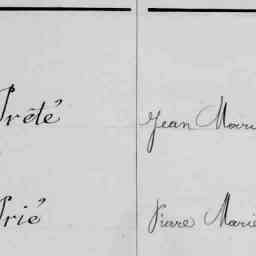 Prêté Jean Marie
Prié Pierre Marie